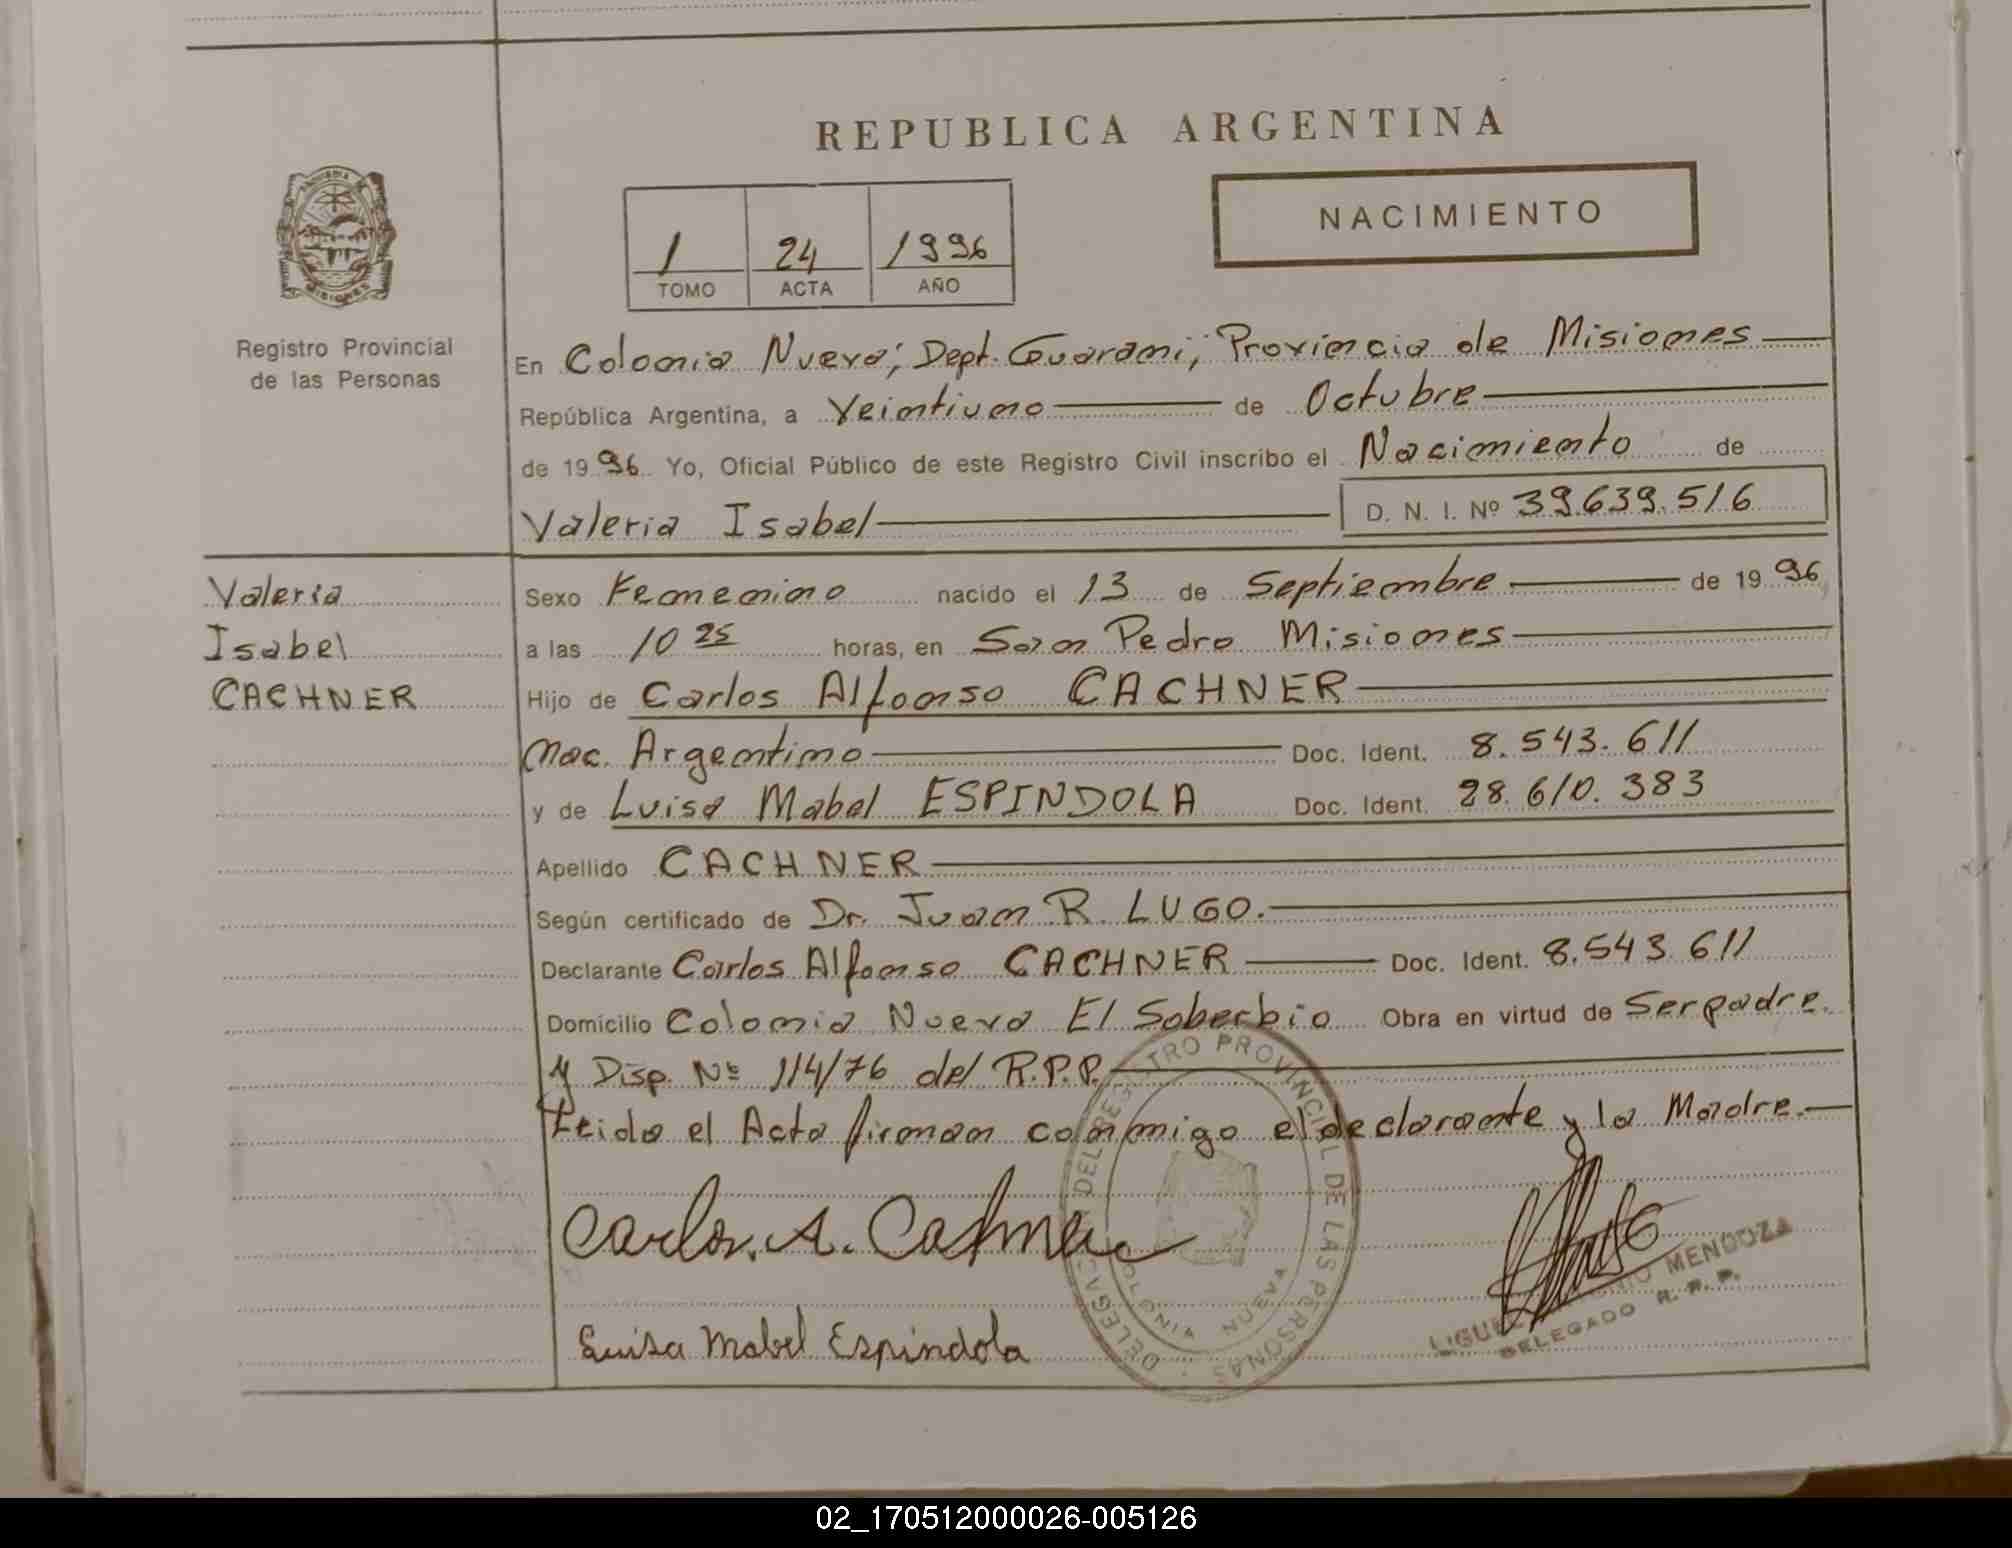 REPUBLICA ARGENTINA
NACIMIENTO
1 24 1996
TOMO ACTA AÑO
PROVINCIA DE
MISIONES
Registro Provincial
de las Personas
En Colonia Nueva; Dept. Guarani; Provincia de Misiones
República Argentina, a Veintiuno de Octubre
de 1996 Yo, Oficial Público de este Registro Civil inscribo el Nacimiento de
Valeria Isabel D. N. I. Nº 39.639.516
Valeria
Isabel
CACHNER
Sexo Femenino nacido el 13 de Septiembre de 1996
a las 10 25 horas, en San Pedro Misiones
Hijo de Carlos Alfonso CACHNER
Nac. Argentino Doc. Ident. 8.543.611
y de Luisa Mabel ESPINDOLA Doc. Ident. 28.610.383
Apellido CACHNER
Según certificado de Dr. Juan R. LUGO.
Declarante Carlos Alfonso CACHNER Doc. Ident. 8.543.611
Domicilio Colonia Nueva El Soberbio Obra en virtud de Serpadre.
y Disp. Nº 114/76 del R.P.P.
Leida el Acta firman conmigo el declarante y la Madre.
Carlos. A. Cachner
Luisa Mabel Espindola
DELEGACION DEL REGISTRO PROVINCIAL DE LAS PERSONAS
COLONIA NUEVA
MENDOZA
DELEGADO R. P. P.
02_170512000026-005126